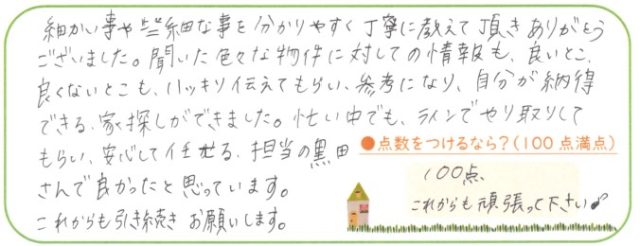 細かい事や些細な事を分かりやすく丁寧に教えて頂きありがとう
ございました。聞いた色々な物件に対しての情報も、良いとこ、
良くないとこも、ハッキリ伝えてもらい、参考になり、自分が納得
できる、家探しができました。忙い中でも、ラインでやり取りして
もらい、安心して任せる、担当の黒田
さんで良かったと思っています。
これからも引き続きお願いします。
●点数をつけるなら?(100点満点)
100点、
これからも頑張って下さい♪